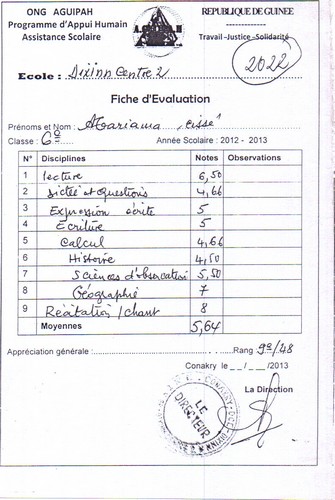 ONG AGUIPAH
Programme d'Appui Humain
Assistance Scolaire
REPUBLIQUE DE GUINEE
Travail -Justice -Solidarité
2022
Ecole : Dixinn Centre 2
Fiche d'Evaluation
Prénoms et Nom : Mariama Cissé
Classe : 6e Année Scolaire : 2012 - 2013
N° Disciplines Notes Observations
1 Lecture 6,50
2 Dictée et Questions 4,66
3 Expression écrite 5
4 Ecriture 5
5 Calcul 4,66
6 Histoire 4,50
7 Sciences d'observation 5,50
8 Géographie 7
9 Récitation / chant 8
Moyennes 5,64
Appréciation générale : Rang 9e/48
Conakry le _ _ / _ _ /2013
La Direction
LE
DIRECTEUR